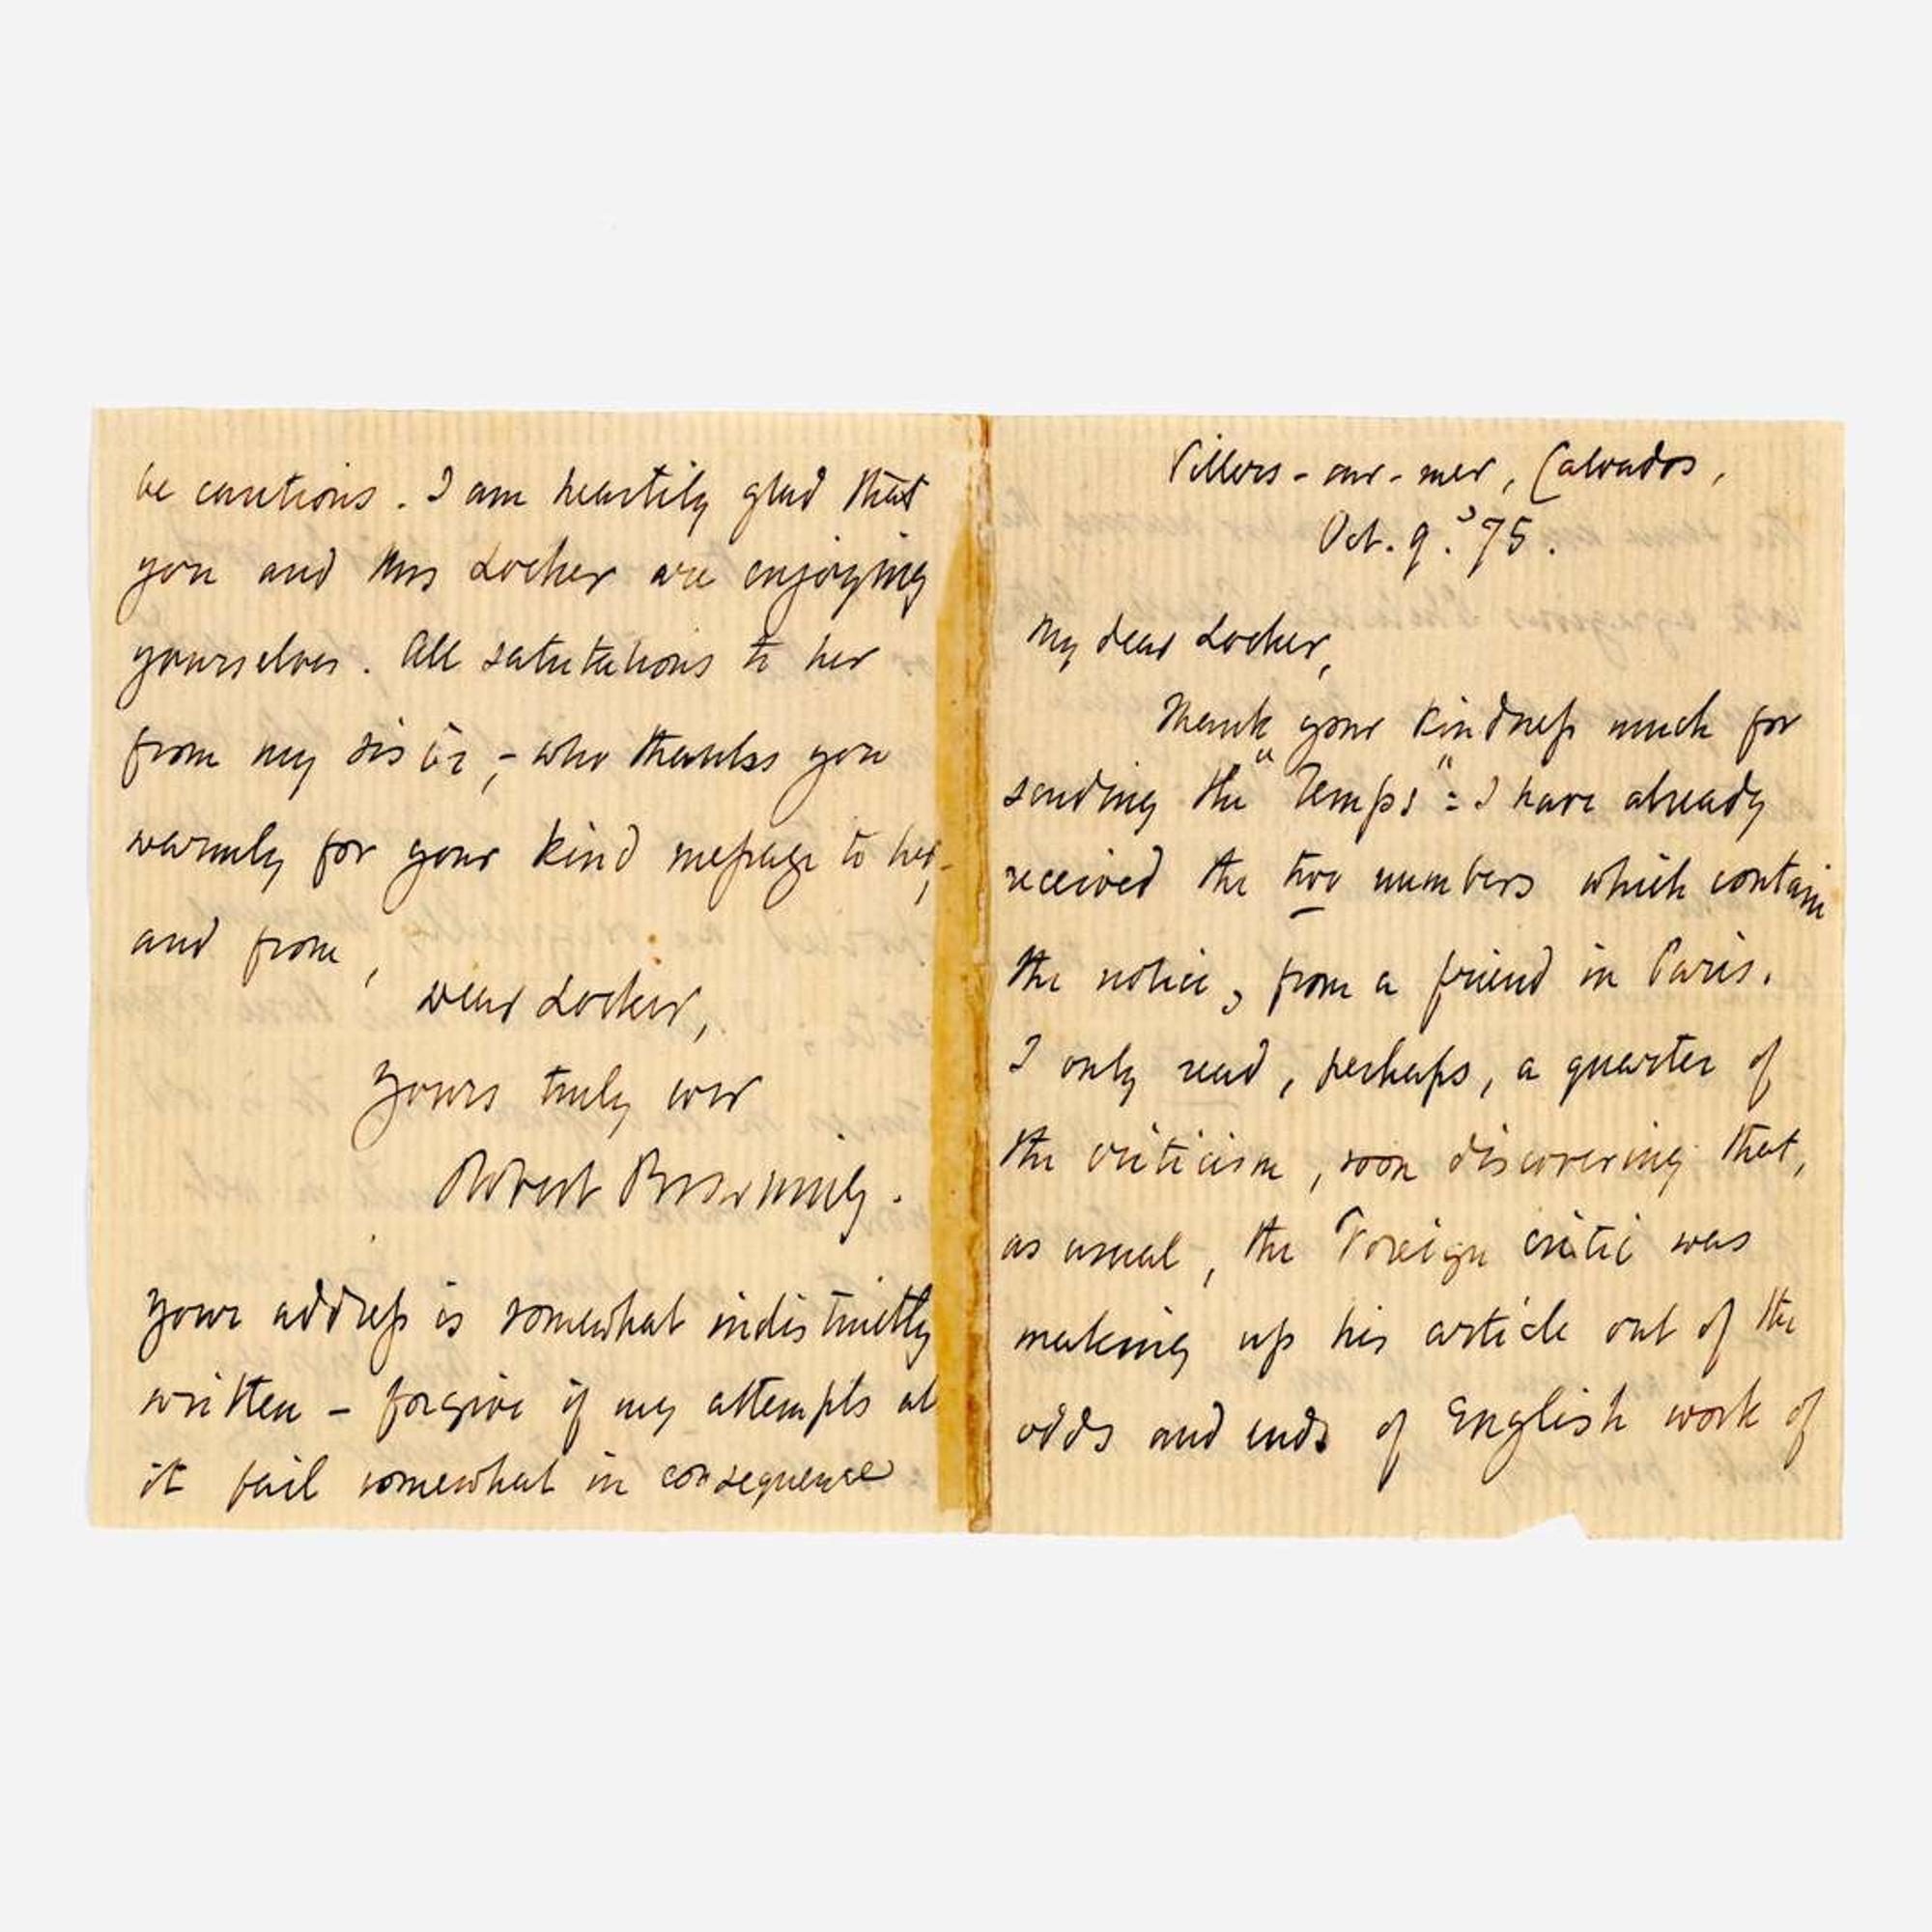 Villers-sur-mer, Calvados,
Oct. 9. '75.
My dear Locker,
Thank your kindness much for
sending the "Temps": I have already
received the two numbers which contain
the notice, from a friend in Paris.
I only read, perhaps, a quarter of
the criticism, soon discovering that,
as usual, the Foreign critic was
making up his article out of the
odds and ends of English work of
be cautious. I am heartily glad that
you and Mrs Locker are enjoying
yourselves. All salutations to her
from my sister, - who thanks you
warmly for your kind message to her, -
and from,
Dear Locker,
Yours truly ever
Robert Browning.
Your address is somewhat indistinctly
written - forgive if my attempts at
it fail somewhat in consequence